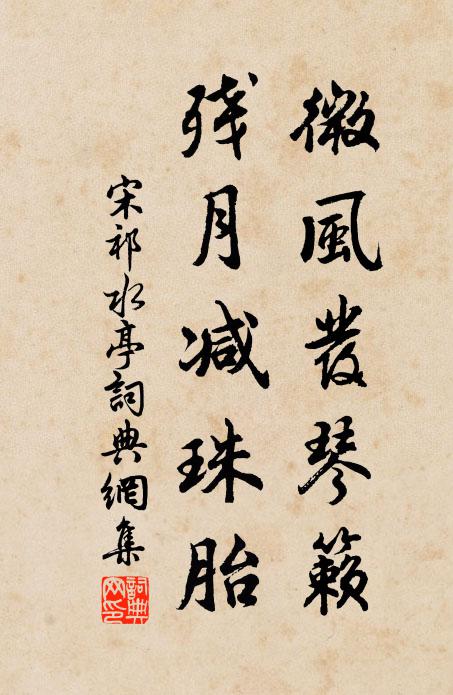 微風發琴籟
殘月減珠胎
宋祁水亭詞典網集
詞典網印